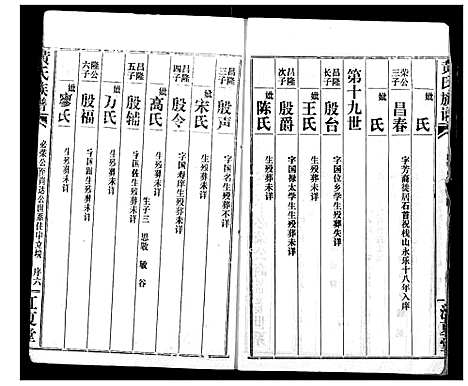 黄氏族谱
荣公三子 昌春 字芳裔徙居石首祝栈山永乐十八年入库
妣 氏
妣 氏
第十九世
昌隆长子 殷台 字国位乡学生殁葬失详
妣 王氏 生殁葬未详
昌隆次子 殷爵 字国禄太学生生殁葬未详
妣 陈氏 生殁葬未详
昌隆三子 殷声 字国名生殁葬不详
妣 宋氏 生殁葬未详
昌隆四子 殷令 字国寿庠生殁葬未详
妣 高氏 生殁葬未详 生子三 思敬 敏 谷
昌隆五子 殷辅 字国佐生殁葬未详
妣 万氏 生殁葬未详
隆公六子 殷福 字国生殁葬未详
妣 廖氏 生殁葬未详
黄氏族谱
必荣公至尚达公世系 序六
江夏堂